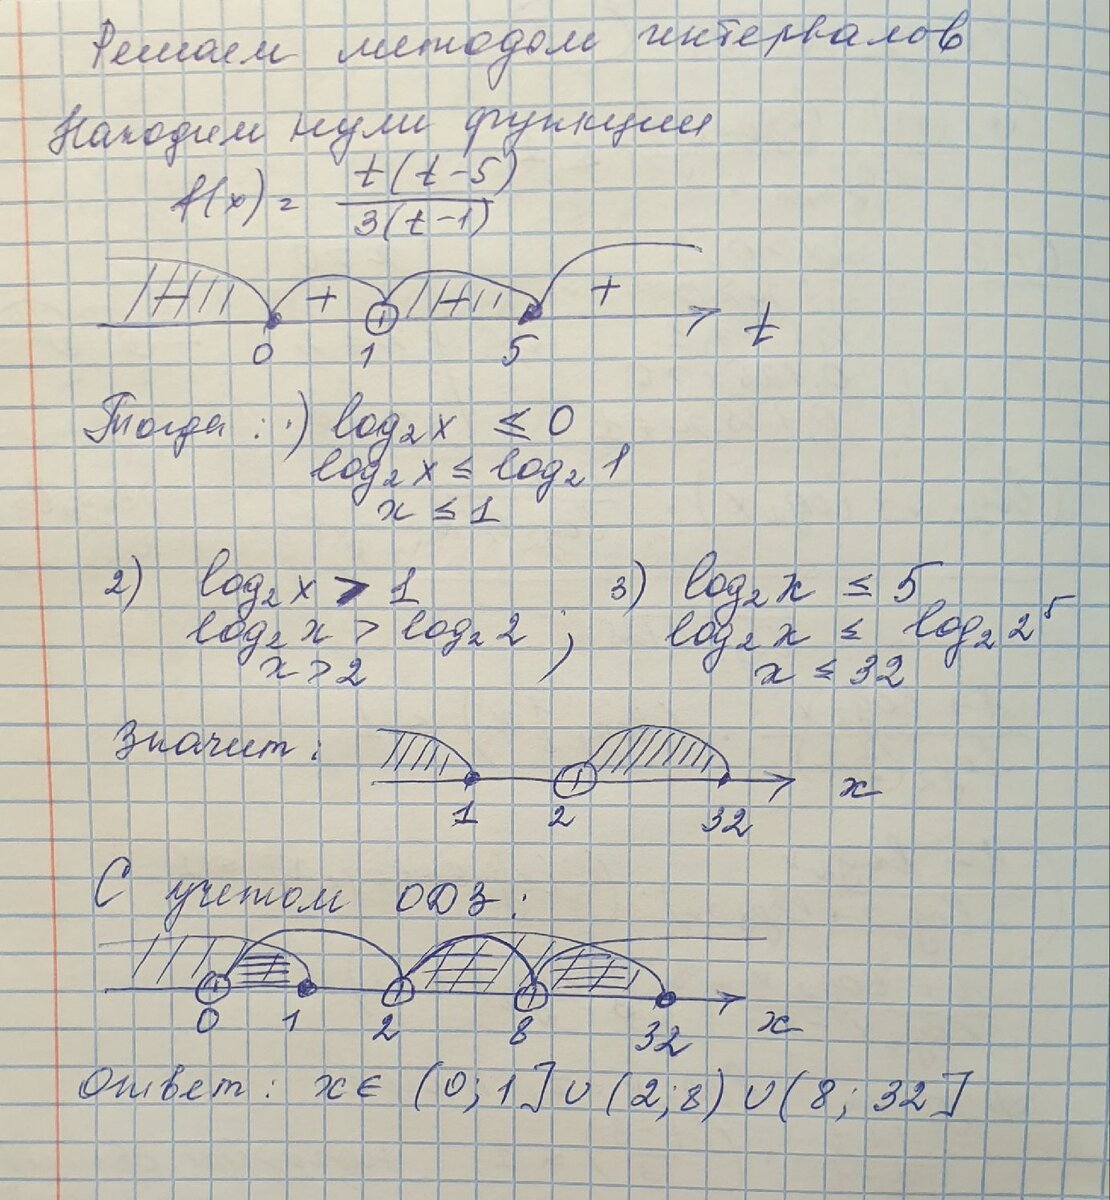 Решаем методом интервалов
Находим нули функции
f(x) = t(t-5) / 3(t-1)
- + - +
0 1 5 t
Тогда: 1) log₂x ≤ 0
log₂x ≤ log₂1
x ≤ 1
2) log₂x > 1 3) log₂x ≤ 5
log₂x > log₂2 ; log₂x ≤ log₂2⁵
x > 2 x ≤ 32
Значит:
1 2 32 x
С учетом ОДЗ:
0 1 2 8 32 x
Ответ: x ∈ (0; 1] ∪ (2; 8) ∪ (8; 32]